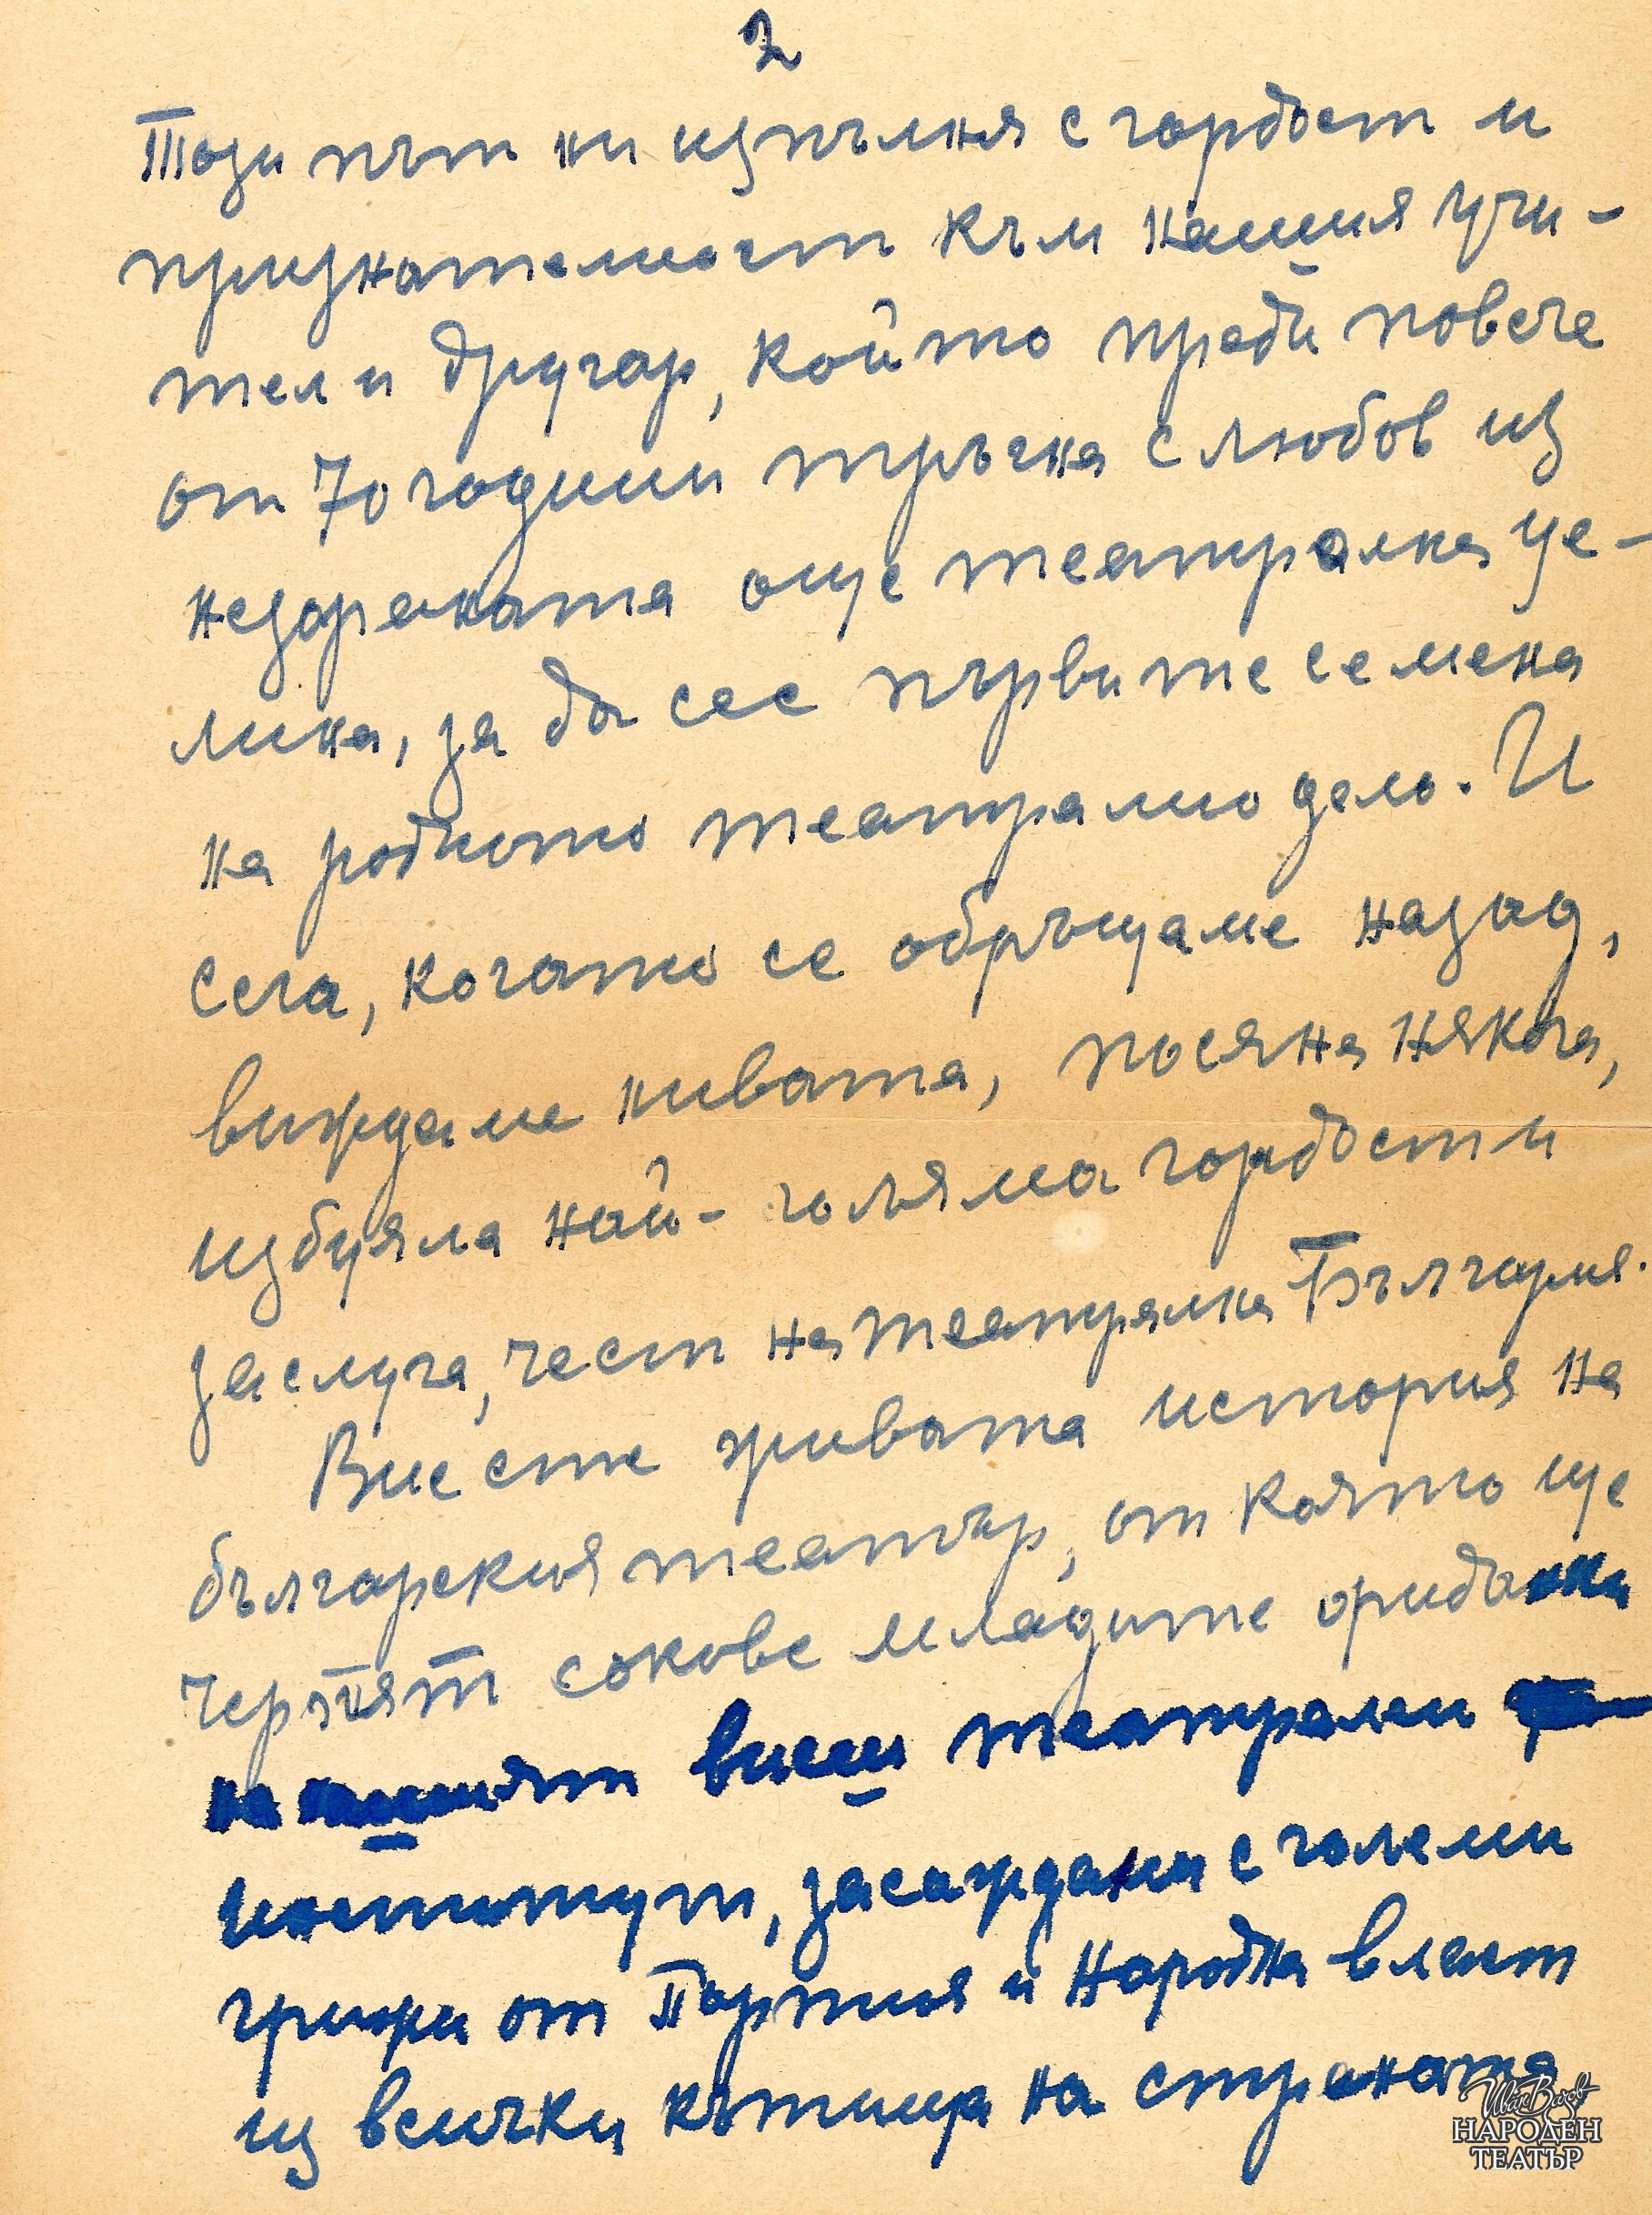 2
Този път ни изпълня с гордост и
признателност към нашия учи-
тел и другар, който преди повече
от 70 години тръгна с любов из
незораната още театрална це-
лина, за да сее първите семена
на родното театрално дело. И
сега, когато се обръщаме назад,
виждаме нивата, посяна някога,
избуяла най-голяма гордост и
заслуга, чест на театрална България.
Вие сте живата история на
българския театър, от която ще
черпят сокове младите фиданки
на нашият висш театрален
институт, засаждани с големи
грижи от Партия и Народна власт
из всички кътища на страната
Иван Вазов
НАРОДЕН
ТЕАТЪР